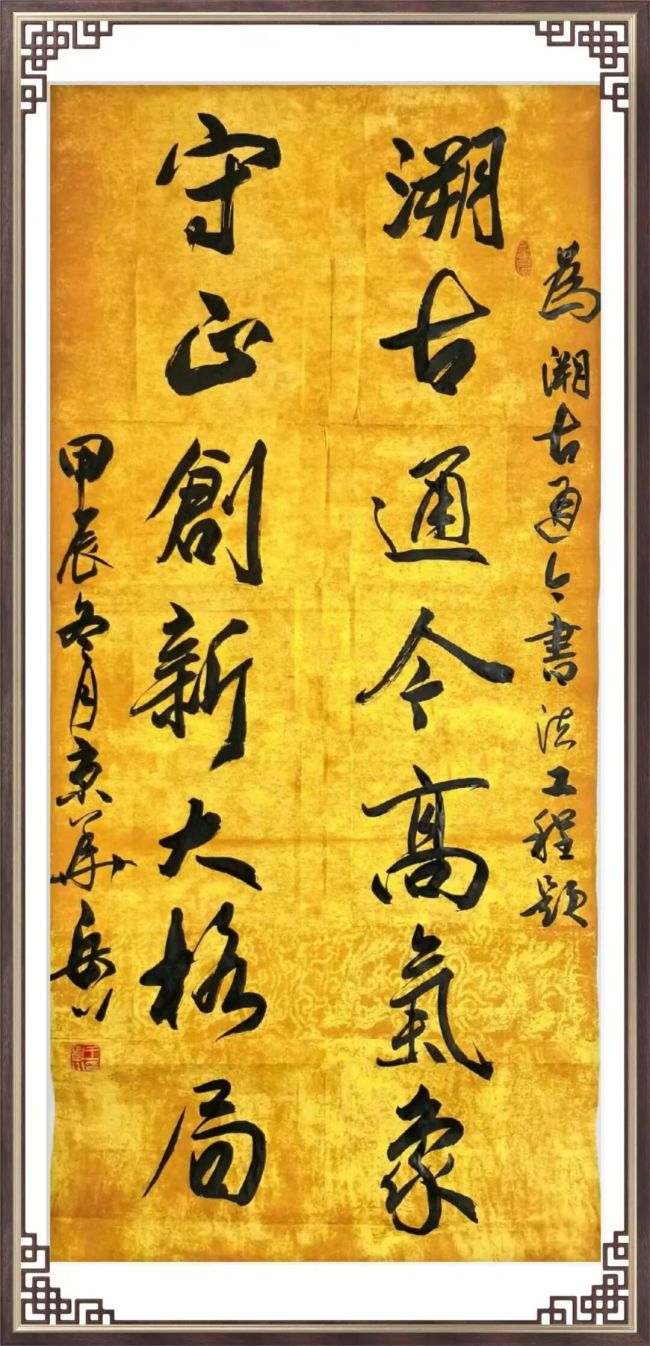 為溯古通今書法工程題
溯古通今高氣象
守正創新大格局
甲辰冬月京華岳川